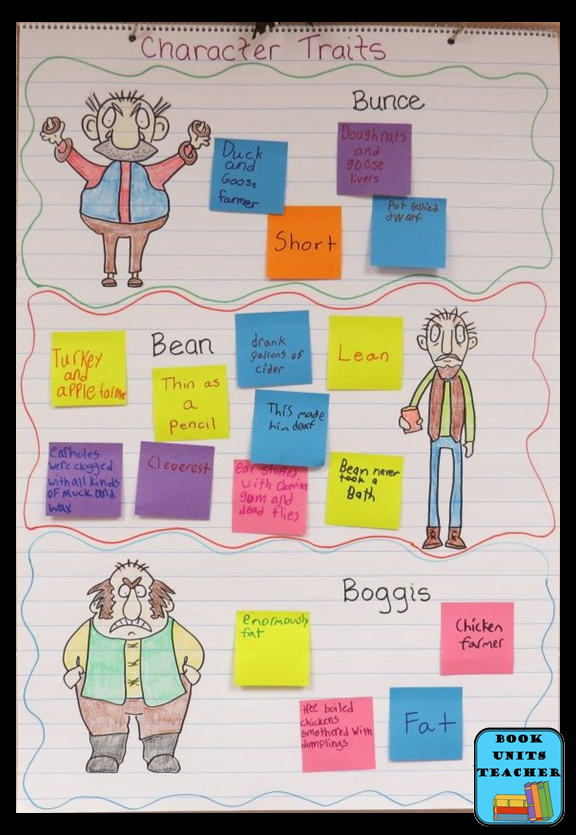 Character Traits
Bunce
Duck
and
Goose
farmer
Doughnuts
and
goose
livers
Short
Pot bellied
dwarf
Bean
Turkey
and
apple farmer
Thin as
a
pencil
drank
gallons of
cider
Lean
This made
him deaf
earholes
were clogged
with all kinds
of muck and
wax
Cleverest
ear stuffed
with chewing
gum and
dead flies
Bean never
took a
Bath
Boggis
enormously
fat
Chicken
farmer
boiled
chickens
smothered with
dumplings
Fat
BOOK
UNITS
TEACHER